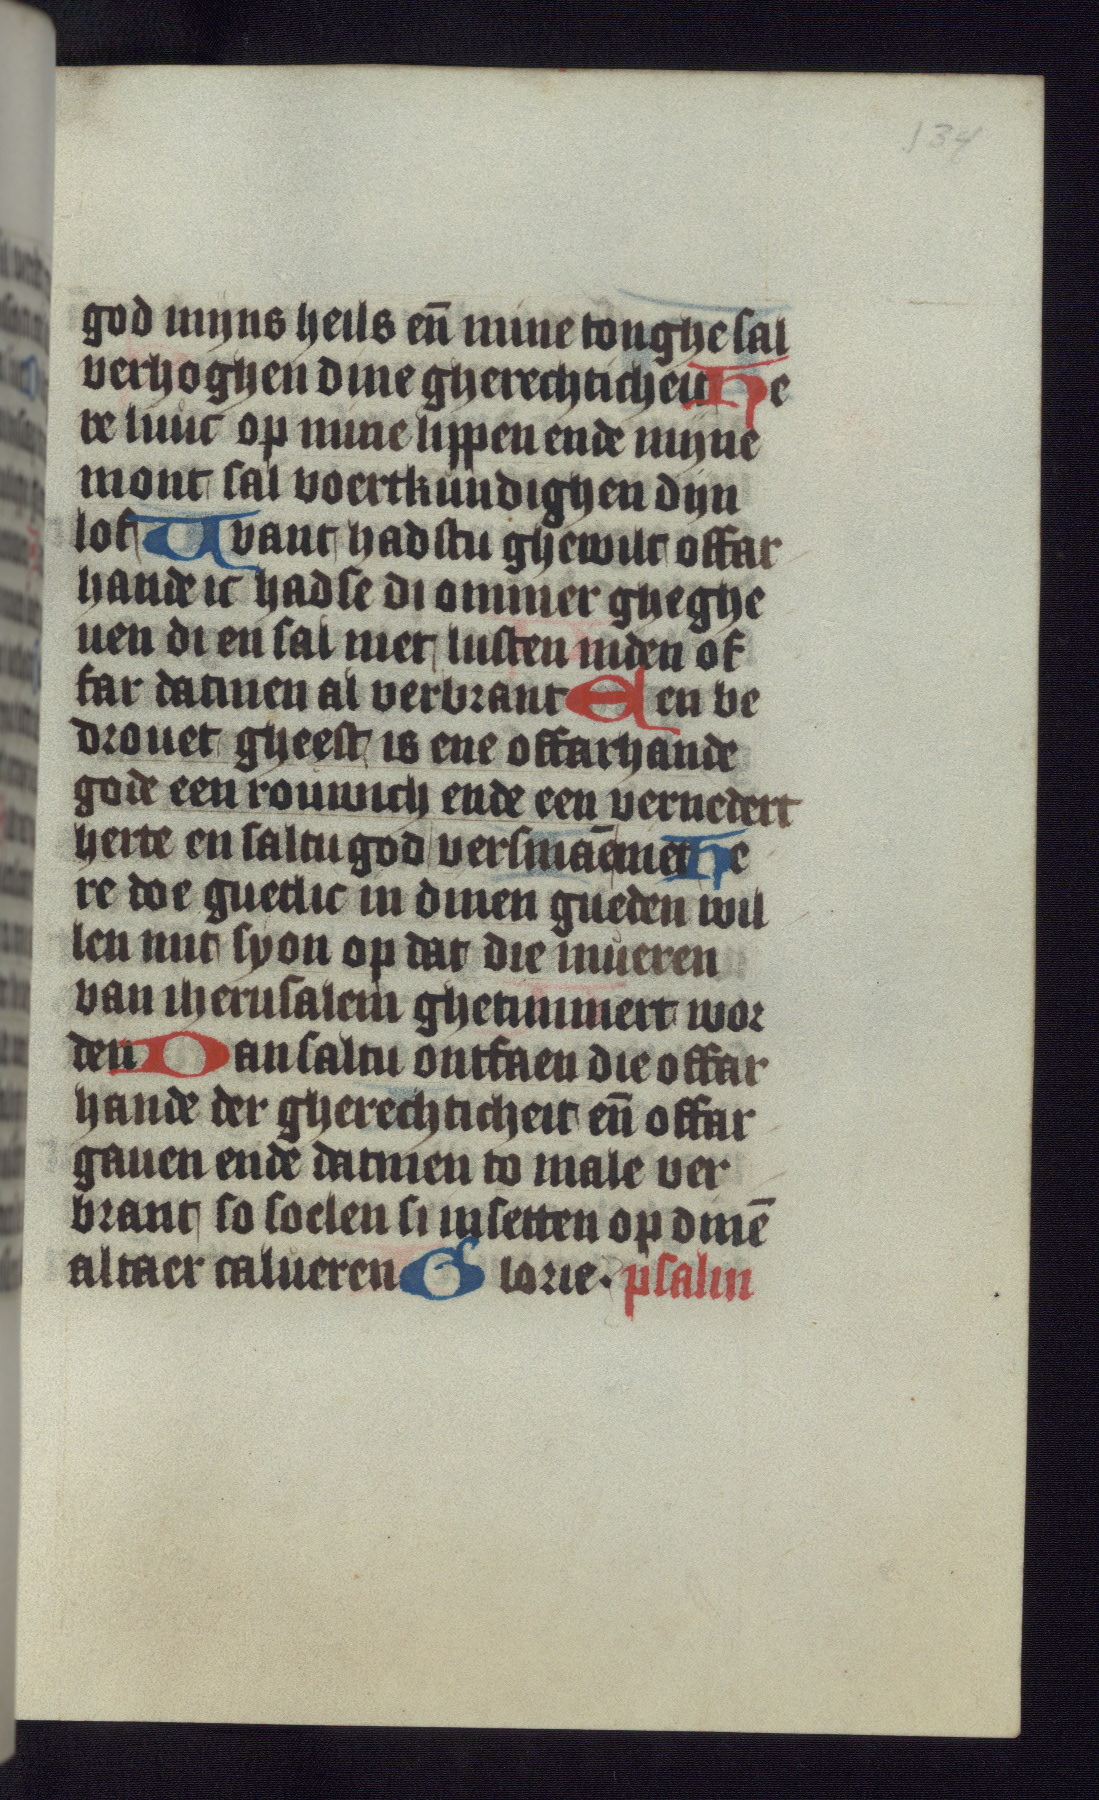 134
god mijns heils en̄ mine tonghe sal
verhoghen dine gherechticheit He
re luuc op mine lippen ende mijne
mont sal voertkundighen dijn
lof Want hadstu ghewilt offar
hande ic hadse di ommer gheghe
uen di en sal niet lusten in den of
far datmen al verbrant Een be
drouet gheest is ene offarhande
gode een rouwich ende een vernedert
herte en saltu god versmaēniet He
re doe guetlic in dinen gueden wil
len mit syon op dat die mueren
van iherusalem ghetimmert wor
den Dan saltu ontfaen die offar
hande der gherechticheit en̄ offar
gauen ende datmen to male ver
brant so soelen si insetten op dinē
altaer calueren Glorie. psalm